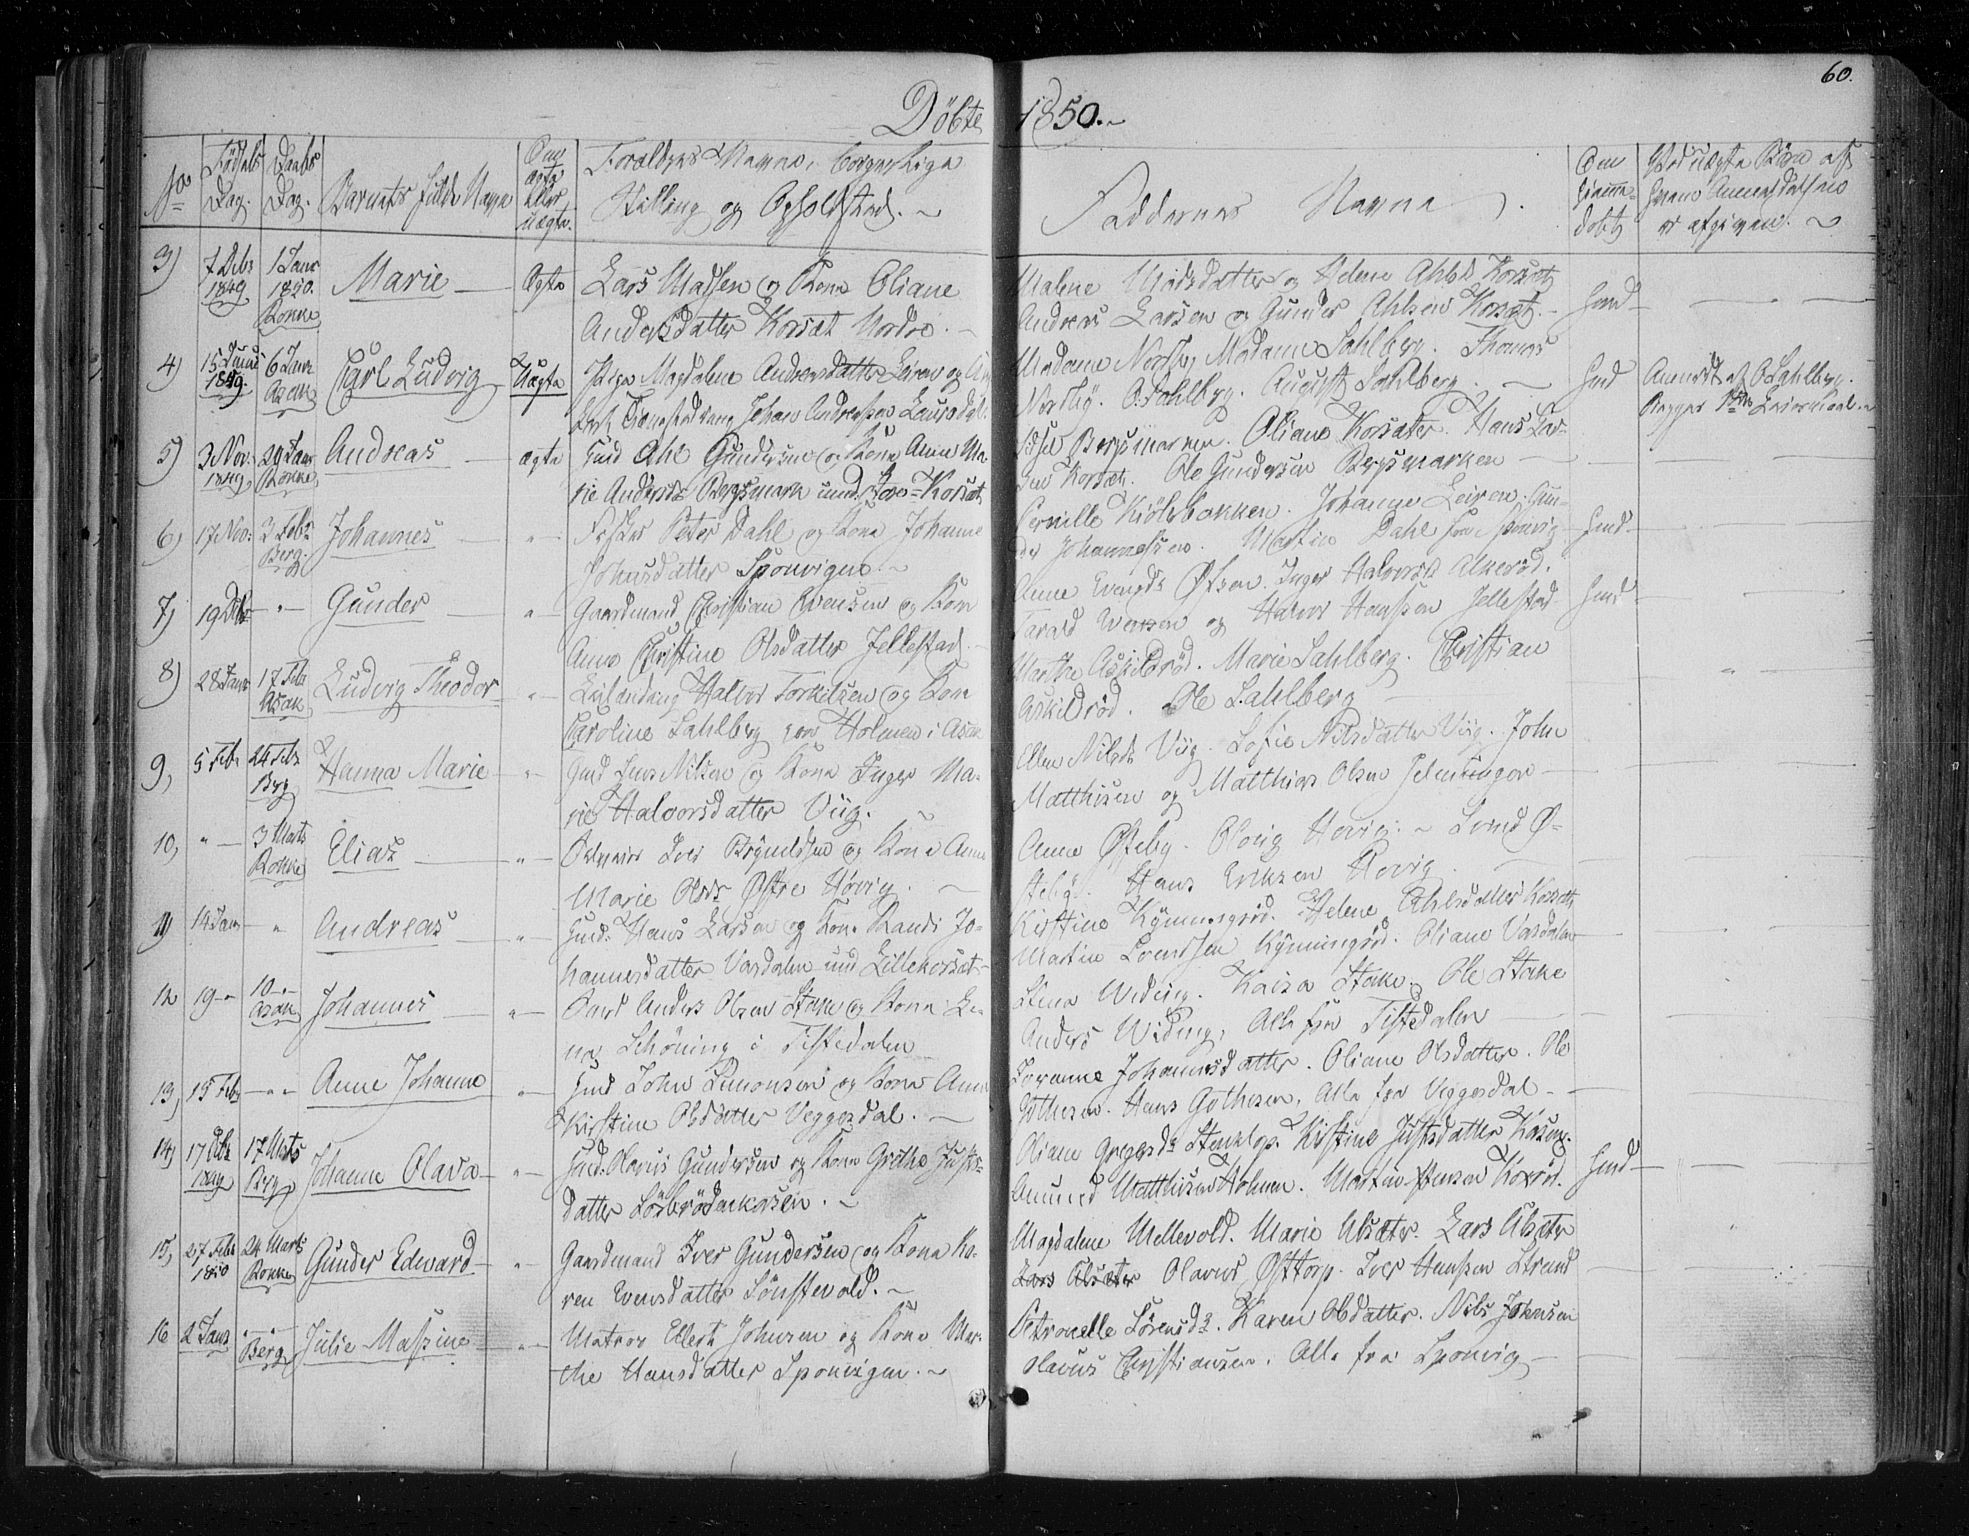 60.
Döbte 1850.
No
Fødsels Dag.
Daabs Dag.
Barnets fulde Navn
Om ægte eller uægte.
Forældrenes Navne, borgerlige
Stilling og Opholdssted.
Faddernes Navne
Om hjemmedøbt
Ved uægte Børn af hvem Anmeldelsen er afgiven.
3) 7 Dcbr 1849 1 Janr 1850. Rokke Marie Ægte Lars Madsen og Kone Oliane
Andersdatter Korsæt Nordre.
Malene Madsdatter og Helene Ahlsd Korsæt
Andreas Larsen og Gunder Ahlsen Korsæt. hmd
4) 15 1849. 6 Janr Asak Carl Ludvig Uægte Pige Magdalene Andreasdatter Leiren og
Johan Andreas
Madame Norsby, Madame Sahlberg. Thomas
Norsby. O. Sahlberg. August Sahlberg. hmd Anmeldt af O. Sahlberg.
5) 3 Nov. 1849 20 Janr Rokke Andreas ægte Huusmd Ahl Gundersen og Kone Anne Ma-
rie Andersdr Bergsmark Korsæt
Bergsmarken. Oliane Korsæter. Hans Lar-
sen Korsæt. Ole Gundersen Bergsmarken
6) 17 Nov. 3 Febr Berg. Johannes " Fisker Peter Dahl og Kone Johanne
Johnsdatter Sponvigen.
Pernille Kiølsbakken. Johanne Leiren. Gun-
der Johannessen. Martin Dahl fra Sponvig hmd
7) 19 Dcbr " Gunder " Gaardmand Christian Evensen og Kone
Anne Christine Olsdatter Jellestad.
Anne Evensdr Ofsen. Inger Halvorsdr Alkerød.
Tarald Evensen og Halvor Hanssen Jellestad hmd
8) 28 Janr 17 Febr Asak Ludvig Theodor " Halvor Torkilsen og Kone
Caroline Sahlberg paa Holmen i Asak
Marthe Askilsrød. Marie Sahlberg. Christian
Askilsrød. Ole Sahlberg
9, 5 Febr 24 Febr Berg Hanna Marie " Gmd Jens Nilsen og Kone Inger Ma-
rie Halvorsdatter Viig.
Ellen Nilsdr Viig. Sofie Nilsdatter Viig. John
Matthisen og Matthias Olsen
10, " 3 Marts Rokke Elias " Iver Bryntelsen og Kone Anne
Marie Olsdr Østre Høvig.
Anne Østeby. Olovig Hovig. Svend Ø-
steby. Hans Eriksen Hovig
11) 14 Janr " Andreas " Hmd: Hans Larsen og Kone Randi Jo-
hannesdatter Vasdalen und Lillekorsæt
Kirstine Kynningsrød. Helene Ahlsdatter Korsæt
Martin Svendsen Kynningsrød. Oliane Vasdalen
12 19 " 10 " Asak Johannes " Anders Olsen Stake og Kone Le-
na Schöning i Tistedalen
Stina Weding. Kaisa Stake. Ole Stake
Anders Widing, Alle fra Tistedalen
13, 15 Febr " Anne Johanne " Hmd John Simonsen og Kone Anne
Kirstine Olsdatter Veggesdal.
Joranne Johannesdatter. Oliane Olsdatter. Ole
Gothesen. Hans Gothesen, Alle fra Veggesdal
14) 17 Dbr 1849 17 Marts Berg Johanne Olava " Hmd. Olavus Gundersen og Kone Grethe Justs-
datter
Oliane Gregersdr Kirstine Justsdatter
Amund Matthisen Holmen. Martin Jensen hmd
15, 27 Febr 1850 24 Marts Rokke Gunder Edward " Gaardmand Iver Gundersen og Kone Ka-
ren Evensdatter Lönstevold.
Magdalene Mellevold. Marie Absæter. Lars Absæter
Lars Absæter Olavus Østtorp. Iver Hanssen Strand
16 2 Janr " Berg Julie Massine " Matros Ellert Johnsen og Kone Mar-
the Hansdatter Sponvigen.
Petronelle Sörensdr. Karen Olsdatter. Nils Johnsen
Olavus Christiansen, Alle fra Sponvig